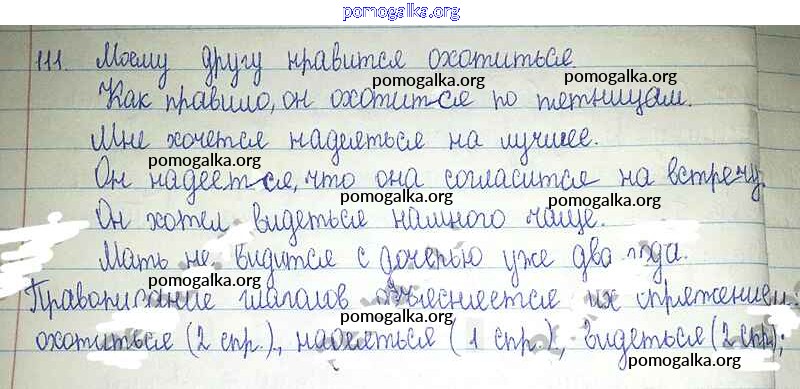 pomogalka.org
111. Моему другу нравится охотиться.
pomogalka.org
Как правило, он охотится по пятницам.
pomogalka.org
Мне хочется надеяться на лучшее.
pomogalka.org
Он надеется, что она согласится на встречу.
pomogalka.org
Он хотел видеться намного чаще.
pomogalka.org
Мать не видится с дочерью уже два года.
pomogalka.org
Правописание глаголов объясняется их спряжением:
pomogalka.org
охотиться (2 спр.), надеяться (1 спр.), видеться (2 спр);
pomogalka.org